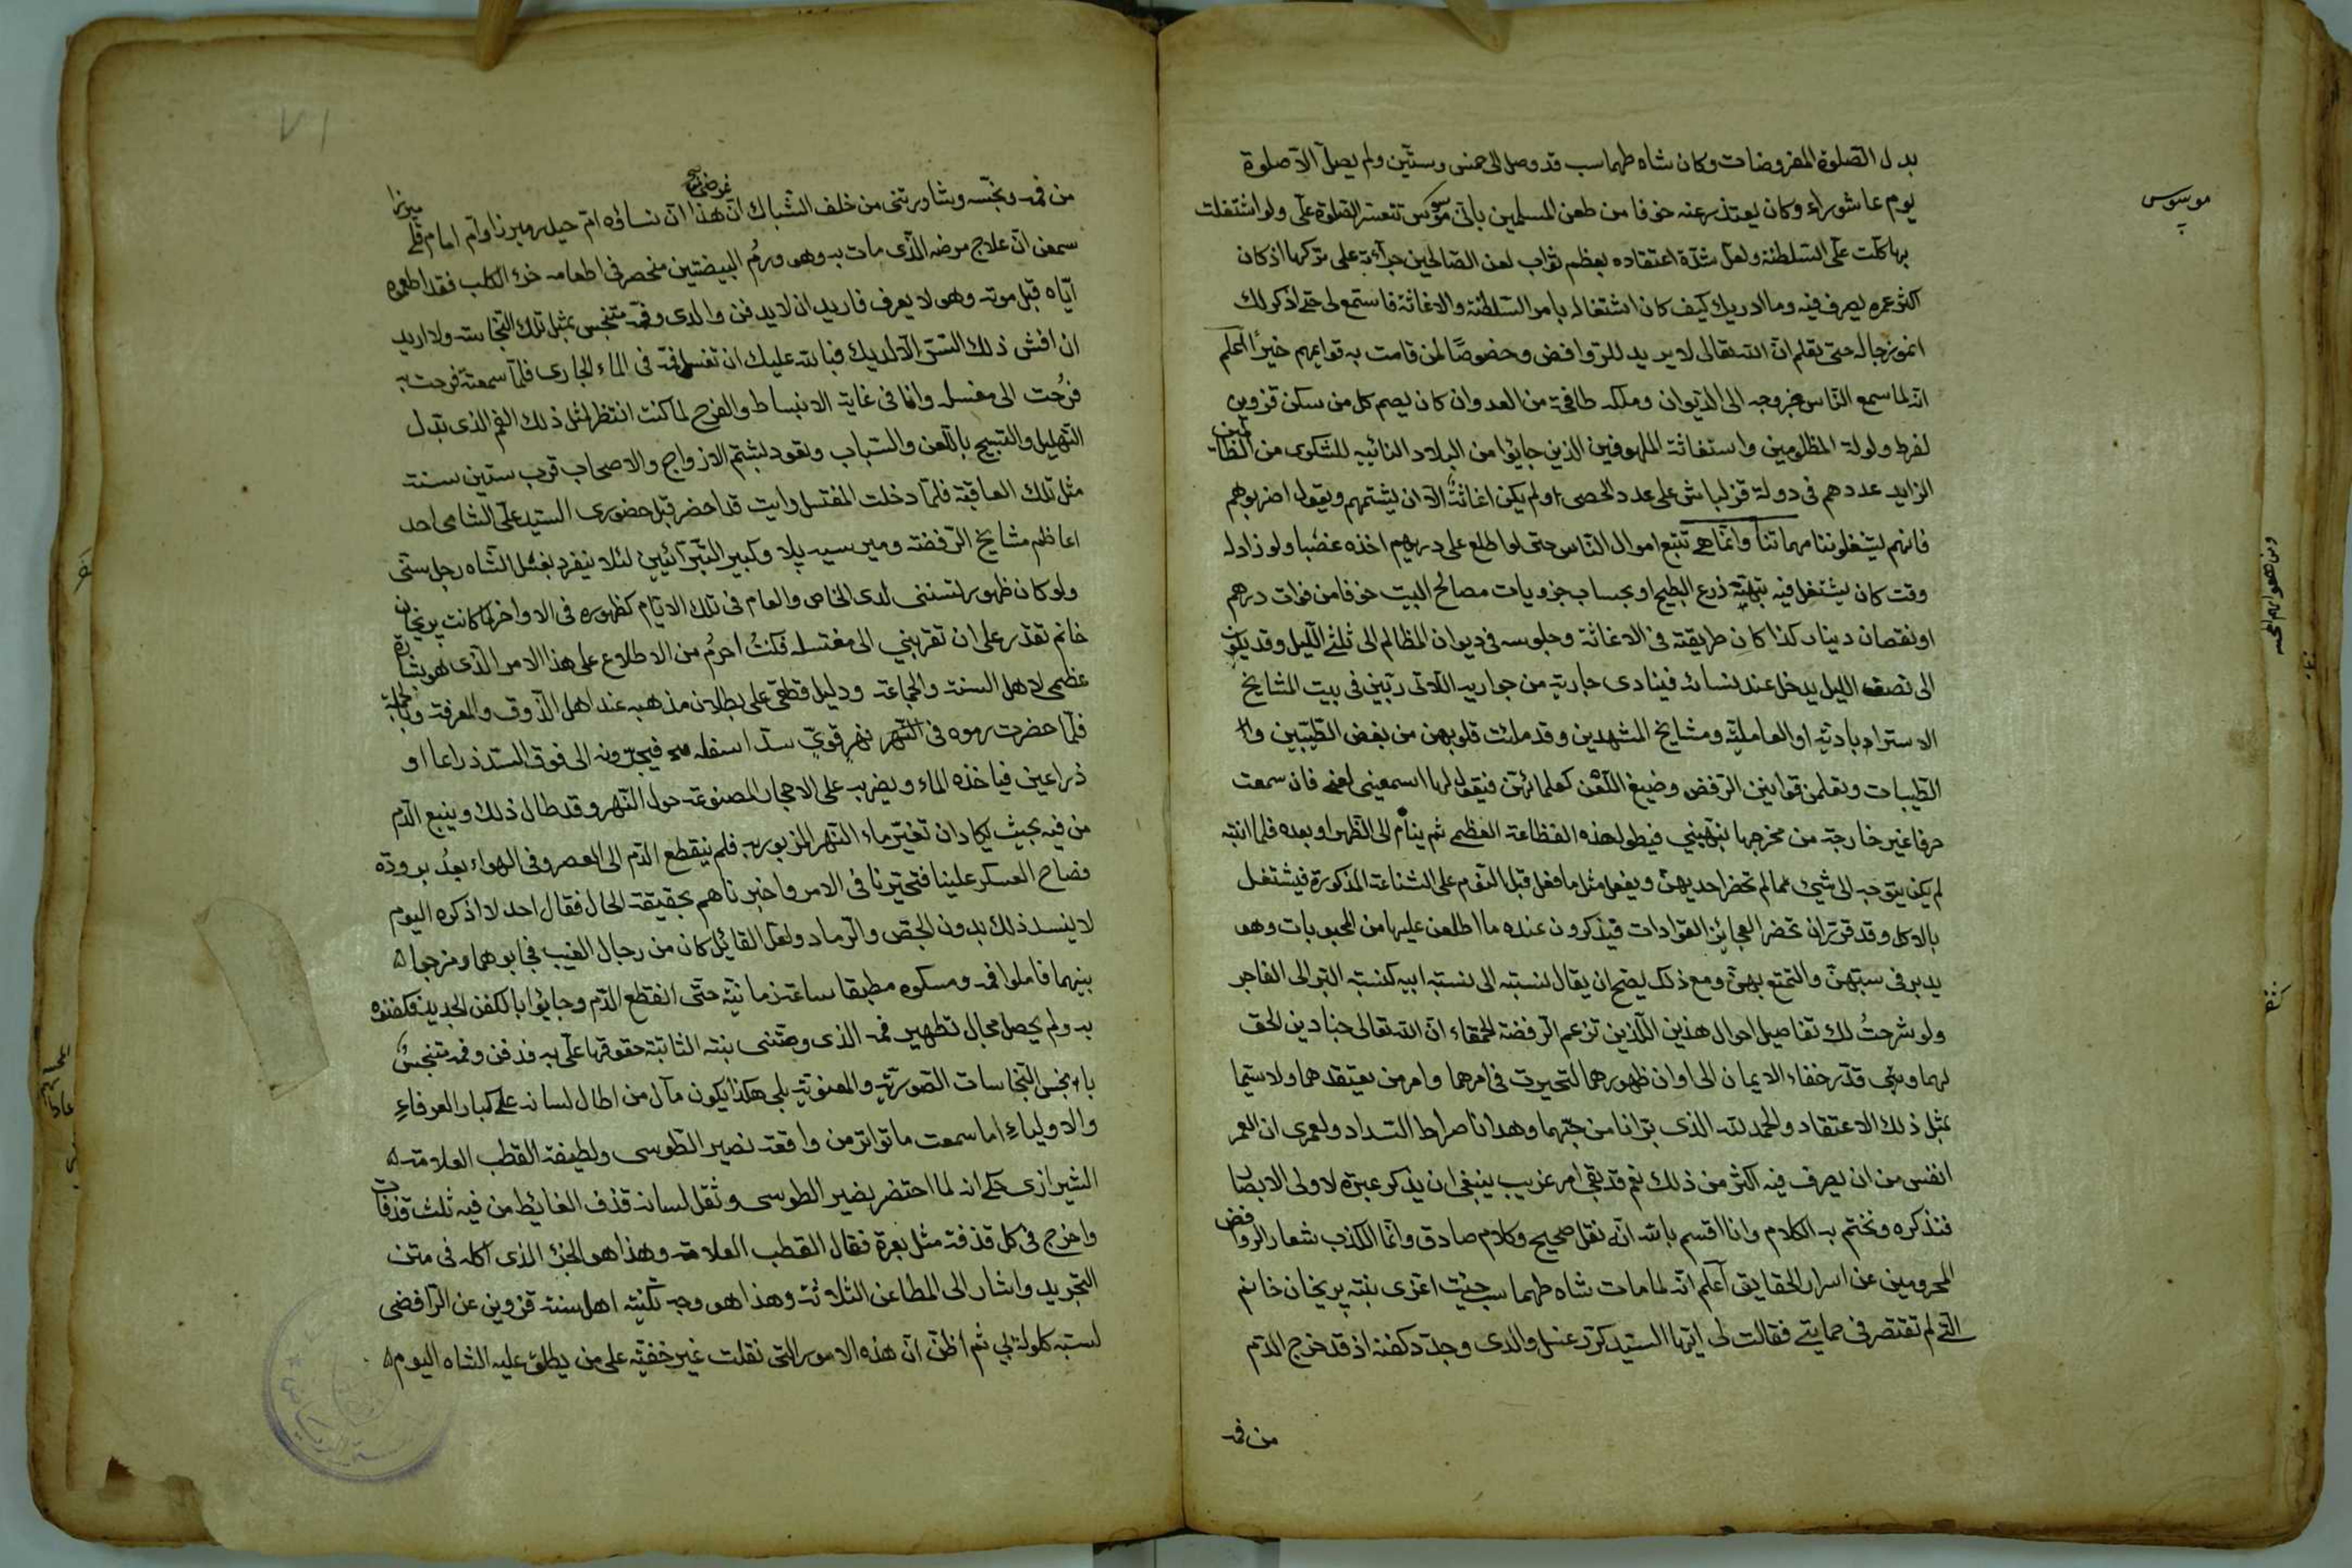 بدل الصلوة المفروضات وكان شاه طهماسب قد وصل الى خمس وستين ولم يصل الا صلوة
يوم عاشوراء وكان يعتذر عنه خوفا من طعن المسلمين باني موسوس تتعسر الصلوة علّي ولو اشتغلت
بها كلت علّي السلطنة ولعل شدة اعتقاده بعظم ثواب لعن الصالحين جرأته على تركها اذ كان
اكثر عمره يصرف فيه وما ادريك كيف كان اشتغاله بامر السلطنة والاغاثة فاستمع لي حتى اذكر لك
انموزجاله حتى تعلم ان الله تعالى لا يريد للروافض وخصوصًا لمن قامت به قوايمهم خيرًا اعلم
انه لما سمع الناس بخروجه الى الديوان وملكه طافحة من العدوان كان يصم كل من سكن قزوين
لفرط ولولة المظلومين واستغاثة الملهوفين الذين جايؤا من البلاد النائيه للشكوى من الظالمين
الزايد عددهم في دولة قزلباش على عدد الحصى ولم يكن اغاثته الا ان يشتمهم ويقول اضربوهم
فانهم يشغلوننا مهماتنا وانما هي تتبع اموال الناس حتى لو اطلع على درهم اخذه غصبا ولو زاد له
وقت كان يشتغل فيه بتهيّة ذرع البطيخ او بحساب جزويات مصالح البيت خوفا من فوات درهم
او نقصان دينار كذا كان طريقته في الاغاثة وجلوسه في ديوان المظالم الى ثلثي الليل وقد يكون
الى نصف الليل يدخل عند نسائه فينادى جارية من جواريه اللاتى ربّين في بيت المشايخ
الاسترابادية او العاملية ومشايخ المشهدين وقد ملئت قلوبهن من بغض الطيبين والـ
الطيبات وتعلمن قوانين الرفض وضيغ اللعن كعلمائهن فيقول لها اسمعيني لعني فان سمعت
حرفا غير خارجة من مخرجها نبهيني فيطول هذه الفظاعة العظمى ثم ينام الى الظهر او بعده فلما انتبه
لم يكن يتوجه الى شيء مما لم تحضر احديهن ويفعل مثل ما فعل قبل النوم على الشناعة المذكورة فيشتغل
بالاكل وقد قرر ان تحضر العجائز القوادات فيذكرون عنده ما اطلعن عليها من المحبوبات وهو
يدبر في سبتهن والتمتع بهن ومع ذلك يصح ان يقال نسبته الى نسبة ابيه كنسبة البر الى الفاجر
ولو شرحتُ لك تفاصيل احوال هذين اللذين تزعم الرفضة الحمقاء ان الله تعالى جنادين الحق
لهما وبنى قدر خفاء الايمان الى اوان ظهورهما لتحيرت في امرهما وامر من يعتقدهما ولا سيما
بمثل ذلك الاعتقاد والحمد لله الذى برّانا من حبّهما وهدانا صراط السداد ولعمرى ان العمر
انفس من ان يصرف فيه اكثر من ذلك نعم قد بقي امر غريب ينبغى ان يذكر عبرة لاولى الابصار
فنذكره ونختم به الكلام وانا اقسم بالله انه نقل صحيح وكلام صادق وانما الكذب شعار الروافض
المحرومين عن اسرار الحقايق اعلم انه لما مات شاه طهماسب جئت اعزى بنته پريخان خانم
التي لم تقتصر في حمايتي فقالت لى ايها السيد كرر غسل والدى وجدد كفنه اذ قد خرج الدم
من فمه
موسوس
من فمه ونجّسه وشاورتنى من خلف الشباك ان غرضى هذا ان نساؤه ام حيدر ميرزا وام امام قلي ميرزا
سمعن ان علاج مرضه الذى مات به وهو ورمُ البيضتين منحصر في اطعامه خرء الكلب فقد اطعموه
اياه قبل موته وهو لا يعرف فاريد ان لا يدفن والدى وفمه متنجس بمثل تلك النجاسة ولا اريد
ان افش ذلك السر الا لديك فبالله عليك ان تغسل فمه في الماء الجارى فلما سمعته فرحت به
فرُحت الى مغسله وانا في غاية الانبساط والفرح لما كنت انتظر لمثل ذلك الفم الذى تبدل
التهليل والتسبيح باللعن والسباب وتعود لشتم الازواج والاصحاب قرب ستين سنة
مثل تلك العاقبة فلما دخلت المغتسل رايت قد احضر قبل حضورى السيد علّي الشامى احد
اعاظم مشايخ الرفضة ومير سيد پلا وكبير التبرآئيين لئلا ينفرد بغسل الشاه رجل سنّي
ولو كان ظهور تسننى لدى الخاص والعام في تلك الايام كظهوره في الاواخر لما كانت پريخان
خانم تقدر على ان تقربني الى مغتسله فكنتُ احرمُ من الاطلاع على هذا الامر الذى هو بشارة
عظمى لاهل السنة والجماعة ودليل قطعى على بطلان مذهبه عند اهل الذوق والمعرفة وبالجملة
فلما حضرت رموه في النهر نهرٍ قويّ سدّ اسفله فيجرّونه الى فوق السد ذراعا او
ذراعين فياخذه الماء ويضربه على الاحجار المصنوعة حول النهر وقد طال ذلك وينبع الدم
من فيه بحيث يكاد ان تغيّر ماء النهر المزبور به فلم ينقطع الدم الى العصر وفي الهواء بعدُ برودة
فصاح العسكر علينا فتحيّرنا في الامر واخبرناهم بحقيقة الحال فقال احد لا اذكره اليوم
لا ينسد ذلك بدون الجص والرماد ولعل القائل كان من رجال الغيب فجابوهما ومزجوا
بينهما فاملوا فمه ومسكوه مطبقا ساعة زمانية حتى انقطع الدم وجايؤا بالكفن الجديد فكفنوه
به ولم يحصل مجال تطهير فمه الذى وصّتنى بنته الثابتة حقوقها علّي به فدفن وفمه متنجسُ
بانجس النجاسات الصورية والمعنوية بلى هكذا يكون مآل من اطال لسانه على كبار العرفاء
والاولياء اما سمعت ما تواتر من واقعة نصير الطوسى ولطيفة القطب العلامة
الشيرازى حكى انه لما احتضر نصير الطوسى وثقل لسانه قذف الغائط من فيه ثلث قذفات
واخرج في كل قذفة مثل بعرة فقال القطب العلامة وهذا هو الخرء الذى اكله في متن
التجريد واشار الى المطاعن الثلاثة وهذا هو وجه تكنية اهل سنة قزوين عن الرافضى
لستبه كلولةئي ثم اظن ان هذه الامور التي نقلت غير خفية على من يطلق عليه الشاه اليوم